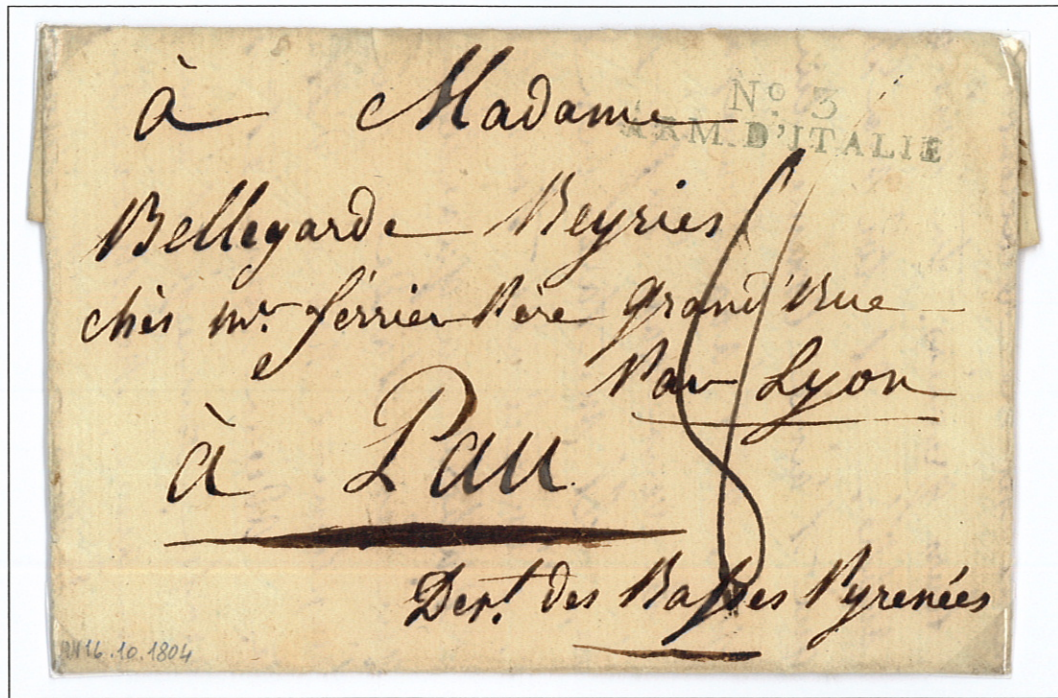 à Madame
N° 3
ARM. D'ITALIE
Bellegarde Beyries
chès mr. ferrier Père grand'Rue
Par Lyon
à Pau
Dept. des Basses Pyrenées
16.10.1804